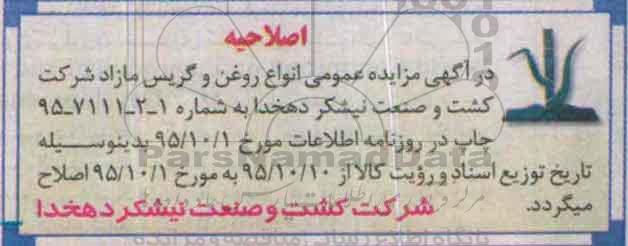 اصلاحیه
در آگهی مزایده عمومی انواع روغن و گریس مازاد شرکت
کشت و صنعت نیشکر دهخدا به شماره ۱-۲-۷۱۱۱-۹۵
چاپ در روزنامه اطلاعات مورخ ۹۵/۱۰/۱ بدینوسیله
ParsNamadData
تاریخ توزیع اسناد و رؤیت کالا از ۹۵/۱۰/۱۰ به مورخ ۹۵/۱۰/۱ اصلاح
میگردد.
شرکت کشت و صنعت نیشکر دهخدا
پایگاه اطلاع رسانی مناقصه و مزایده